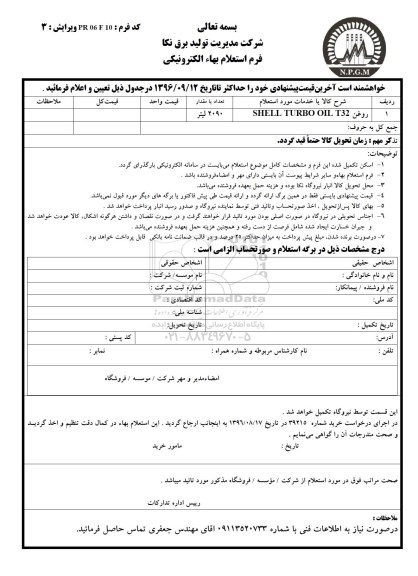 بسمه تعالی
کد فرم : PR 06 F 10 ویرایش : ۳
شرکت مدیریت تولید برق نکا
فرم استعلام بهاء الکترونیکی
N.P.G.M
خواهشمند است آخرین قیمت پیشنهادی خود را حداکثر تا تاریخ ۱۳۹۶/۰۹/۱۲ در جدول ذیل تعیین و اعلام فرمائید .
ردیف شرح کالا یا خدمات مورد استعلام تعداد یا مقدار قیمت واحد قیمت کل ملاحظات
۱ روغن SHELL TURBO OIL T32 ۲۰۹۰ لیتر
جمع کل به حروف:
تذکر مهم : زمان تحویل کالا حتماً قید گردد.
توضیحات:
۱- اسکن تکمیل شده این فرم و مشخصات کامل موضوع استعلام می‌بایست در سامانه الکترونیکی بارگذاری گردد.
۲- فرم استعلام بهاء و سایر شرایط پیوست آن بایستی دارای مهر و امضاء فروشنده باشد .
۳- محل تحویل کالا انبار نیروگاه نکا بوده و هزینه حمل بعهده فروشنده می‌باشد.
۴- قیمت پیشنهادی بایستی فقط در همین برگ ارائه گردد و ارائه قیمت طی پیش فاکتور یا برگه های دیگر مورد قبول نمی‌باشد.
۵- بهای کالا پس از تحویل ، اخذ صورتحساب و تائید فنی توسط نماینده نیروگاه و صدور رسید انبار پرداخت خواهد شد .
۶- اجناس تحویلی در نیروگاه در صورت اصلی بودن مورد تائید قرار خواهند گرفت و در صورت نقصان و داشتن هرگونه اشکال، کالا عودت خواهد شد
و جبران خسارت ایجاد شده شامل فرصت از دست رفته و همچنین هزینه حمل بعهده فروشنده می‌باشد .
۷- در صورت برنده شدن، مبلغ پیش پرداخت به میزان حداکثر ۲۵ درصد و در قالب ضمانت نامه بانکی قابل پرداخت خواهد بود .
درج مشخصات ذیل در برگه استعلام و صورتحساب الزامی است :
اشخاص حقیقی اشخاص حقوقی
نام و نام خانوادگی : نام موسسه/ شرکت :
نام فروشنده / پیمانکار: شماره ثبت شرکت :
کد ملی: کد اقتصادی :
شناسه ملی:
تاریخ تکمیل : تاریخ تحویل:
آدرس: کد پستی :
تلفن : نام کارشناس مربوطه و شماره همراه : نمابر :
ParsNamadData
۰۲۱-۸۸۳۴۹۶۷۰-۵
امضاء مدیر و مهر شرکت / موسسه / فروشگاه
این قسمت توسط نیروگاه تکمیل خواهد شد .
در اجرای درخواست خرید شماره ۳۹۲۱۵ در تاریخ ۱۳۹۶/۰۸/۱۷ به اینجانب ارجاع گردید . این استعلام بهاء در کمال دقت تنظیم و اخذ گردیده
و صحت مندرجات آن را گواهی می‌نمایم .
تاریخ : مامور خرید
صحت مراتب فوق در مورد استعلام از شرکت / مؤسسه / فروشگاه مذکور مورد تائید میباشد .
رییس اداره تدارکات
ملاحظات :
درصورت نیاز به اطلاعات فنی با شماره ۰۹۱۱۳۵۲۰۷۳۳ اقای مهندس جعفری تماس حاصل فرمائید.